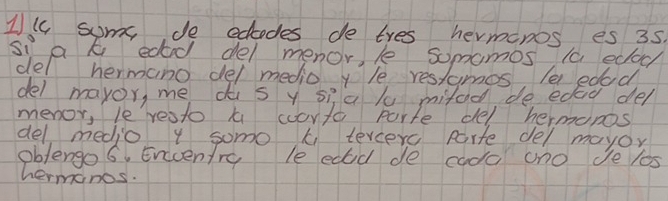 1) la suma de edades de tres hermanos es 35.
si a la edad del menor, le sumamos la edad
del hermano del medio y le restamos la edad
del mayor, me da 5 y si a la mitad de edad del
menor, le resto la cuarta parte del hermanos
del medio y somo la tercera parte del mayor
obtengo 6. Encuentra le edad de cada uno de los
hermanos.